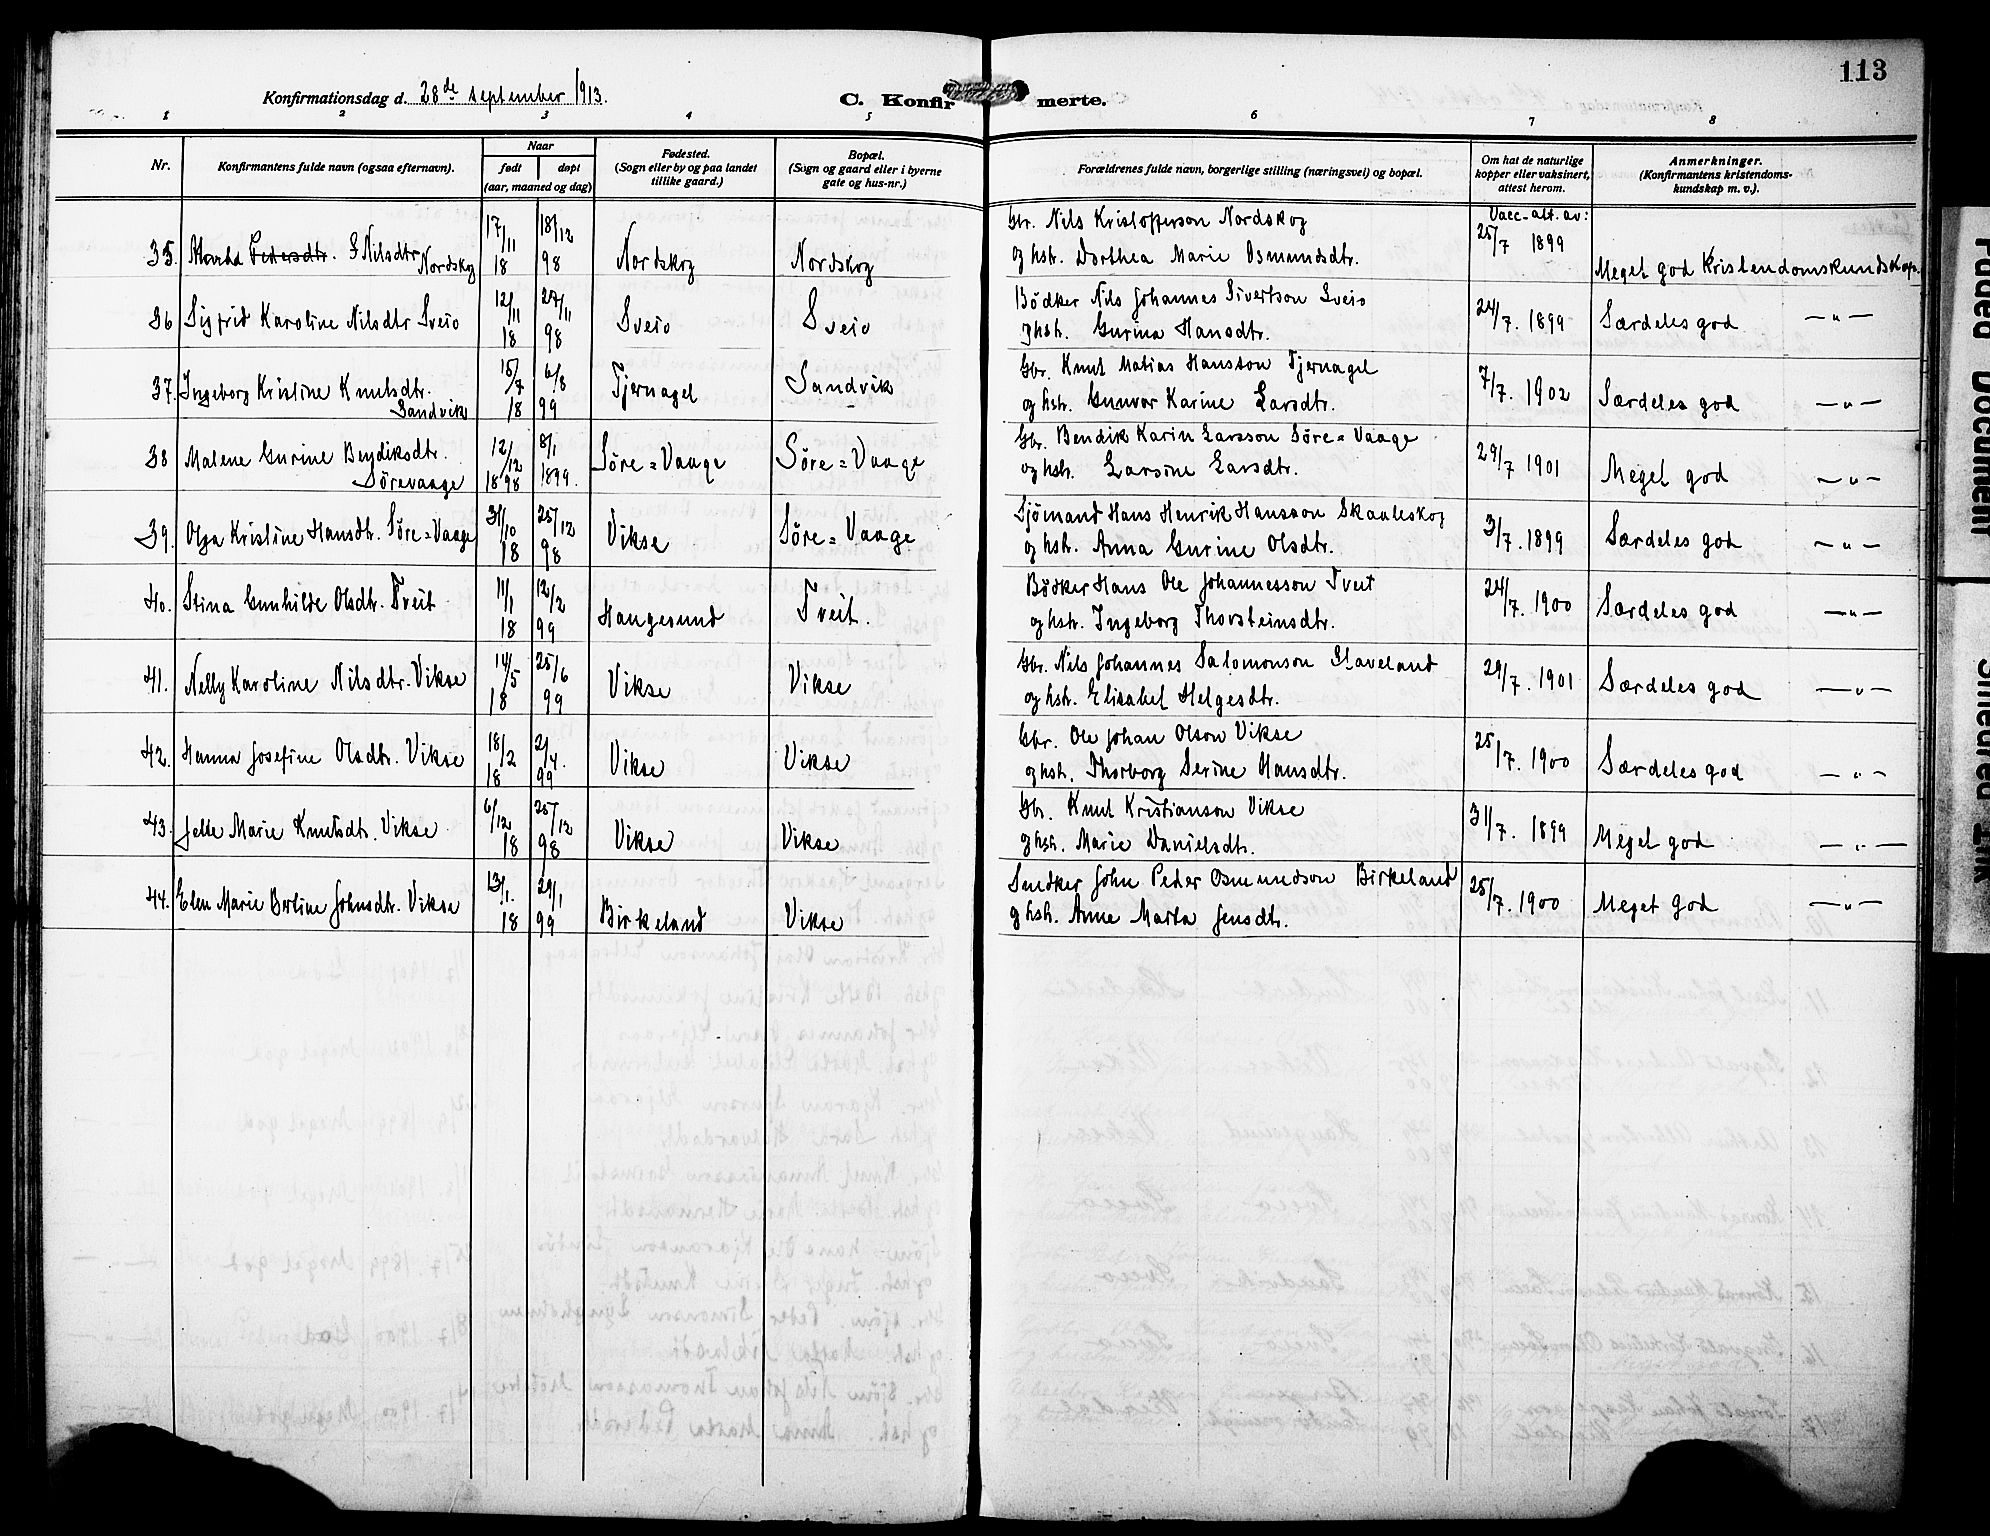 113
Konfirmationsdag d. 28de september 1913.
C. Konfirmerte.
1 2 3 4 5 6 7 8
Nr.
Konfirmantens fulde navn (ogsaa efternavn).
Naar
født døpt
(aar, maaned og dag)
Fødested.
(Sogn eller by og paa landet
tillike gaard.)
Bopæl.
(Sogn og gaard eller i byerne
gate og hus-nr.)
Forældrenes fulde navn, borgerlige stilling (næringsvei) og bopæl.
Om hat de naturlige
kopper eller vaksinert,
attest herom.
Anmerkninger.
(Konfirmantens kristendoms-
kundskap m. v.).
Vacc-att. av:
35. Pedersdtr. Nilsdtr Nordskog 17/11 18 18/12 98 Nordskog Nordskog
Gbr. Nils Kristofferson Nordskog
og hstr. Dorthea Marie Osmundsdtr.
25/7 1899 Meget god Kristendomskundskap.
36 Sigfrid Karoline Nilsdtr Sveio 12/11 18 27/11 98 Sveio Sveio
Bödker Nils Johannes Sivertson Sveio
og hstr. Gurina Hansdtr.
24/7. 1899 Særdeles god —"—
37. Ingeborg Kristine Knutsdtr. Sandvik 15/7 18 6/8 99 Tjernagel Sandvik
Gbr. Knut Matias Hansson Tjernagel
og hstr. Gunvor Karine Larsdtr.
7/7. 1902 Særdeles god —"—
38 Malene Gurine Bendiksdtr. Sörevaage 12/12 1898 8/1 1899. Söre=Vaage Söre=Vaage
Gbr. Bendik Karin Larsson Söre=Vaage
og hstr. Larsine Larsdtr.
29/7 1901 Meget god —"—
39. Olga Kristine Hansdtr. Söre=Vaage 31/10 18 25/12 98 Vikse Söre=Vaage
Sjömand Hans Henrik Hansson Skaaleskog
og hstr. Anna Gurine Olsdtr.
3/7. 1899 Særdeles god —"—
40. Stina Gunhilde Olsdtr. Tveit 11/1 18 12/2 99 Haugesund Tveit.
Bödker Hans Ole Johannesson Tveit
og hstr. Ingeborg Thorsteinsdtr.
24/7. 1900 Særdeles god —"—
41. Nelly Karoline Nilsdtr. Vikse 14/5 18 25/6 99 Vikse Vikse
Gbr. Nils Johannes Salomonson
og hstr. Elisabet Helgesdtr.
29/7. 1901 Særdeles god —"—
42. Hanna Josefine Olsdtr. Vikse 18/2 18 2/4. 99 Vikse Vikse
Gbr. Ole Johan Olson Vikse
og hstr. Thorborg Serine Hansdtr.
25/7. 1900 Særdeles god —"—
43. Jelle Marie Knutsdtr. Vikse 6/12 18 25/12 98 Vikse Vikse
Gbr. Knut Kristianson Vikse
og hstr. Marie Danielsdtr.
31/7. 1899 Meget god —"—
44. Elen Marie Bertine Johnsdtr. Vikse 13/1. 18 29/1 99 Birkeland Vikse
Snedker John Peder Osmundson Birkeland
og hstr. Anne Marta Jensdtr.
25/7. 1900 Meget god —"—
Faded Document
Smeared Ink